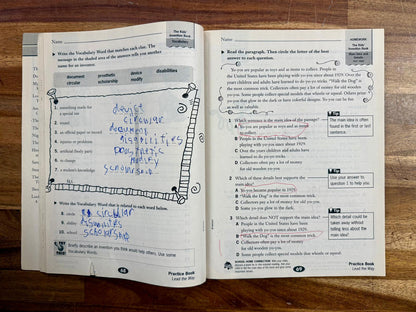 Name
The Kids'
Invention Book
Vocabulary
Write the Vocabulary Word that matches each clue. The
message in the shaded area of the answers tells you another
name for an inventor.
document prosthetic device disabilities
circular scholarship modify
1. something made for
a special use
2. round
3. an official paper or record
4. injuries or problems
5. artificial body part
6. to change
7. a student's knowledge
circular
document
disabilities
Write the Vocabulary Word that is related to each word below.
8. circle
circular
9. ability
10. school
scholarship
Briefly describe an invention you think would help others. Use some
Vocabulary Words.
68
Practice Book
Lead the Way
Name
HOMEWORK
The Kids'
Invention Book
Main Idea and
Details
Read the paragraph. Then circle the letter of the best
answer to each question.
Yo-yos are popular as toys and as items to collect. People in
the United States have been playing with yo-yos since about 1929. Over the
years children and adults have learned to do yo-yo tricks. "Walk the Dog" is
the most common trick. Collectors often pay a lot of money for old wooden
yo-yos. Some people collect special models that whistle or squeak. Others prize
yo-yos that glow in the dark or have colorful designs. Yo-yos can be fun
as well as valuable.
1 Which sentence is the main idea of the passage?
A Yo-yos are popular as toys and as items
to collect.
B People in the United States have been
playing with yo-yos since about 1929.
C Over the years children and adults have
learned to do yo-yo tricks.
D Collectors often pay a lot of money
for old wooden yo-yos.
Tip
The main idea is often
found in the first or last
sentence.
2 Which of these details best supports the
main idea?
A Yo-yos became popular in 1929.
B "Walk the Dog" is the most common trick.
C Collectors pay a lot of money for old yo-yos.
D Some yo-yos glow in the dark.
Tip
Use your answer to
question 1 to help you.
3 Which detail does NOT support the main idea?
A People in the United States have been
playing with yo-yos since about 1929.
B "Walk the Dog" is the most common trick.
C Collectors often pay a lot of money
for old wooden yo-yos.
D Some people collect special models that whistle or squeak.
Tip
Which detail could be
taken out without
telling less about the
main idea?
SCHOOL-HOME CONNECTION
69
Practice Book
Lead the Way